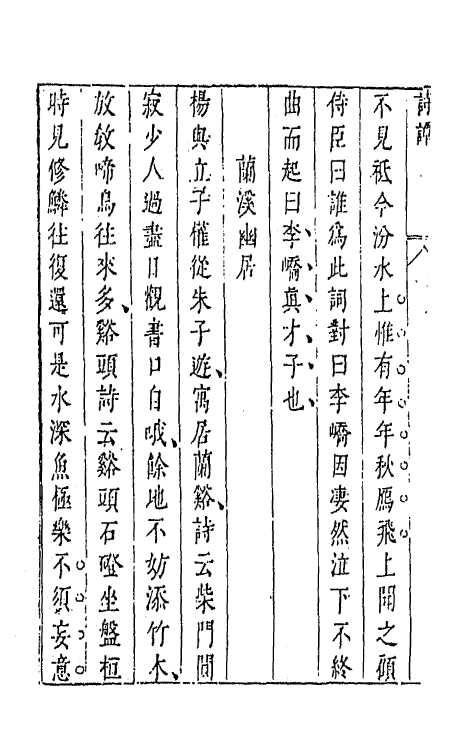 詩譚
不見祗今汾水上惟有年年秋鴈飛上聞之顧
侍臣曰誰爲此詞對曰李嶠因凄然泣下不終
曲而起曰李嶠真才子也
蘭溪幽居
楊與立子懽從朱子遊寓居蘭谿詩云柴門閒
寂少人過盡日觀書口自哦餘地不妨添竹木
放教啼鳥往來多谿頭詩云谿頭石磴坐盤桓
時見修鱗往復還可是水深魚極樂不須妄意